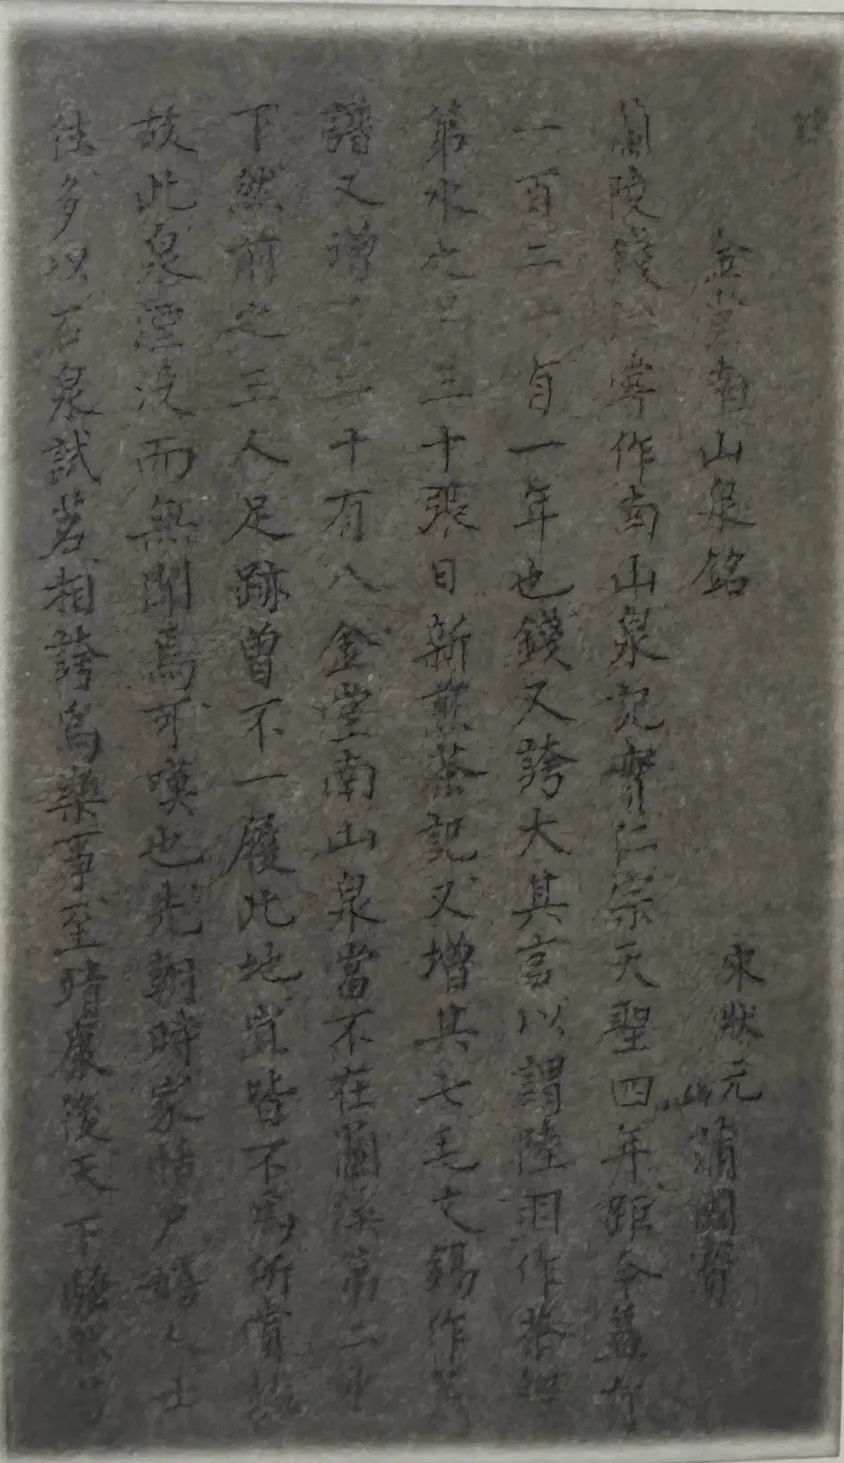 金堂南山泉銘
宋狀元蒲國寶
蘭陵錢 嘗作南山泉記實仁宗天聖四年距今蓋有
一百二十有一年也錢又誇大其言以謂陸羽作茶經
第水之品三十張日新煎茶記又增其七毛文錫作茶
譜又增 二十有八金堂南山泉當不在蘭溪第二水
下然前之三人足跡曾不一履此地豈皆不為所賞哉
故此泉湮沒而無聞焉可嘆也先朝時家恬戶嬉人士
往多以石泉試茗相誇為樂事至靖康後天下騷然